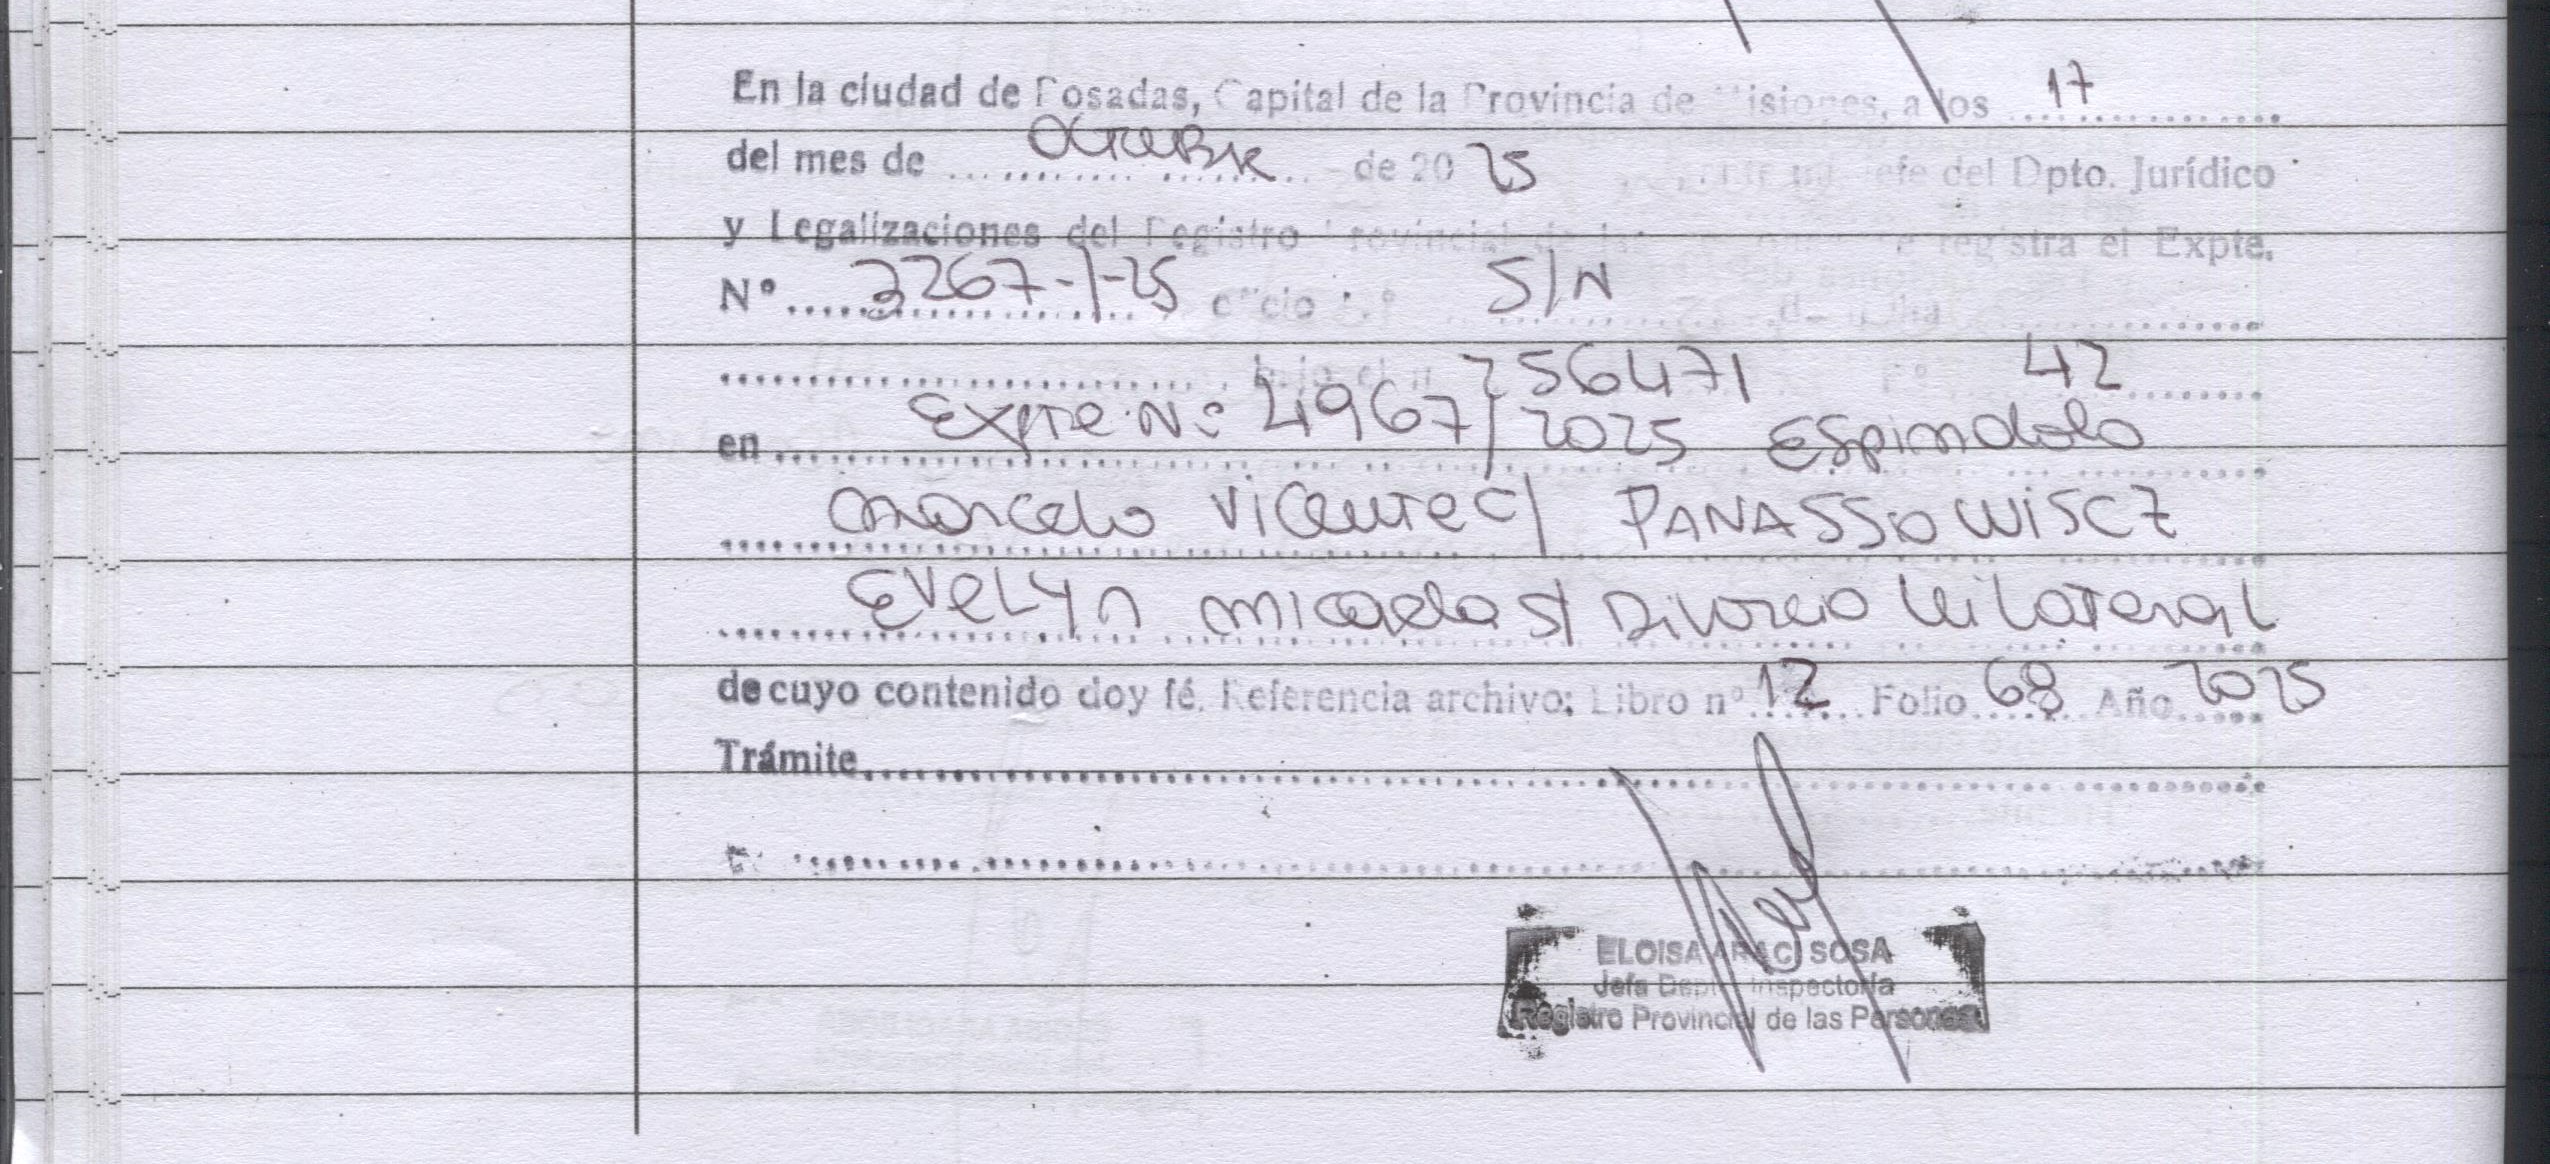 En la ciudad de Posadas, Capital de la Provincia de Misiones, a los 17
del mes de Octubre de 2025 Jefe del Dpto. Jurídico
y Legalizaciones del Registro Provincial de registra el Expte.
Nº 3267-1-25 oficio S/N
256471 Fº 42
en Expte Nº 4967/2025 Espindola
Marcelo Vicente C/ PANASSIOWISCZ
EVELYn Micaela S/ Divorcio Uilateral
de cuyo contenido doy fé. Referencia archivo: Libro nº 12 Folio 68 Año 2025
Trámite
ELOISA ARACI SOSA
Jefa Depto Inspectoría
Registro Provincial de las Personas